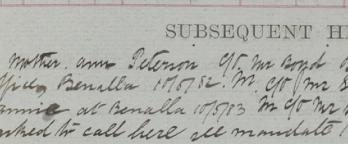 SUBSEQUENT HI
Mother. Ann Peterson c/o Mr Boyd
ffice, Benalla 10/5/82. M. c/o Mr
annie at Benalla 10/5/83 M c/o Mr
asked to call here see mandate